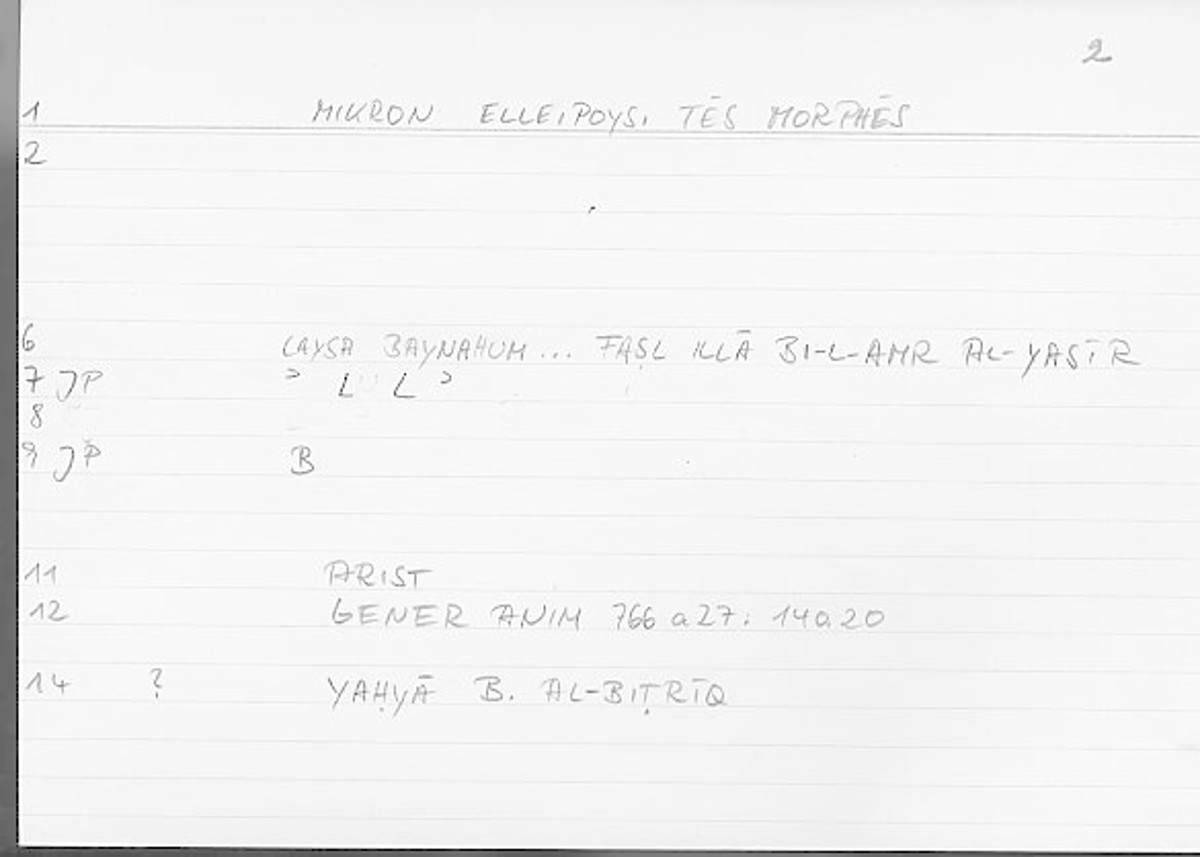 2
1 MIKRON ELLEIPOYSI TĒS MORPHĒS
2
6 LAYSA BAYNAHUM... FAṢL ILLĀ BI-L-AMR AL-YASĪR
7 JP ʾ L L ʾ
8
9 JP B
11 ARIST
12 GENER ANIM 766 a 27 : 140.20
14 ? YAḤYĀ B. AL-BIṬRĪQ